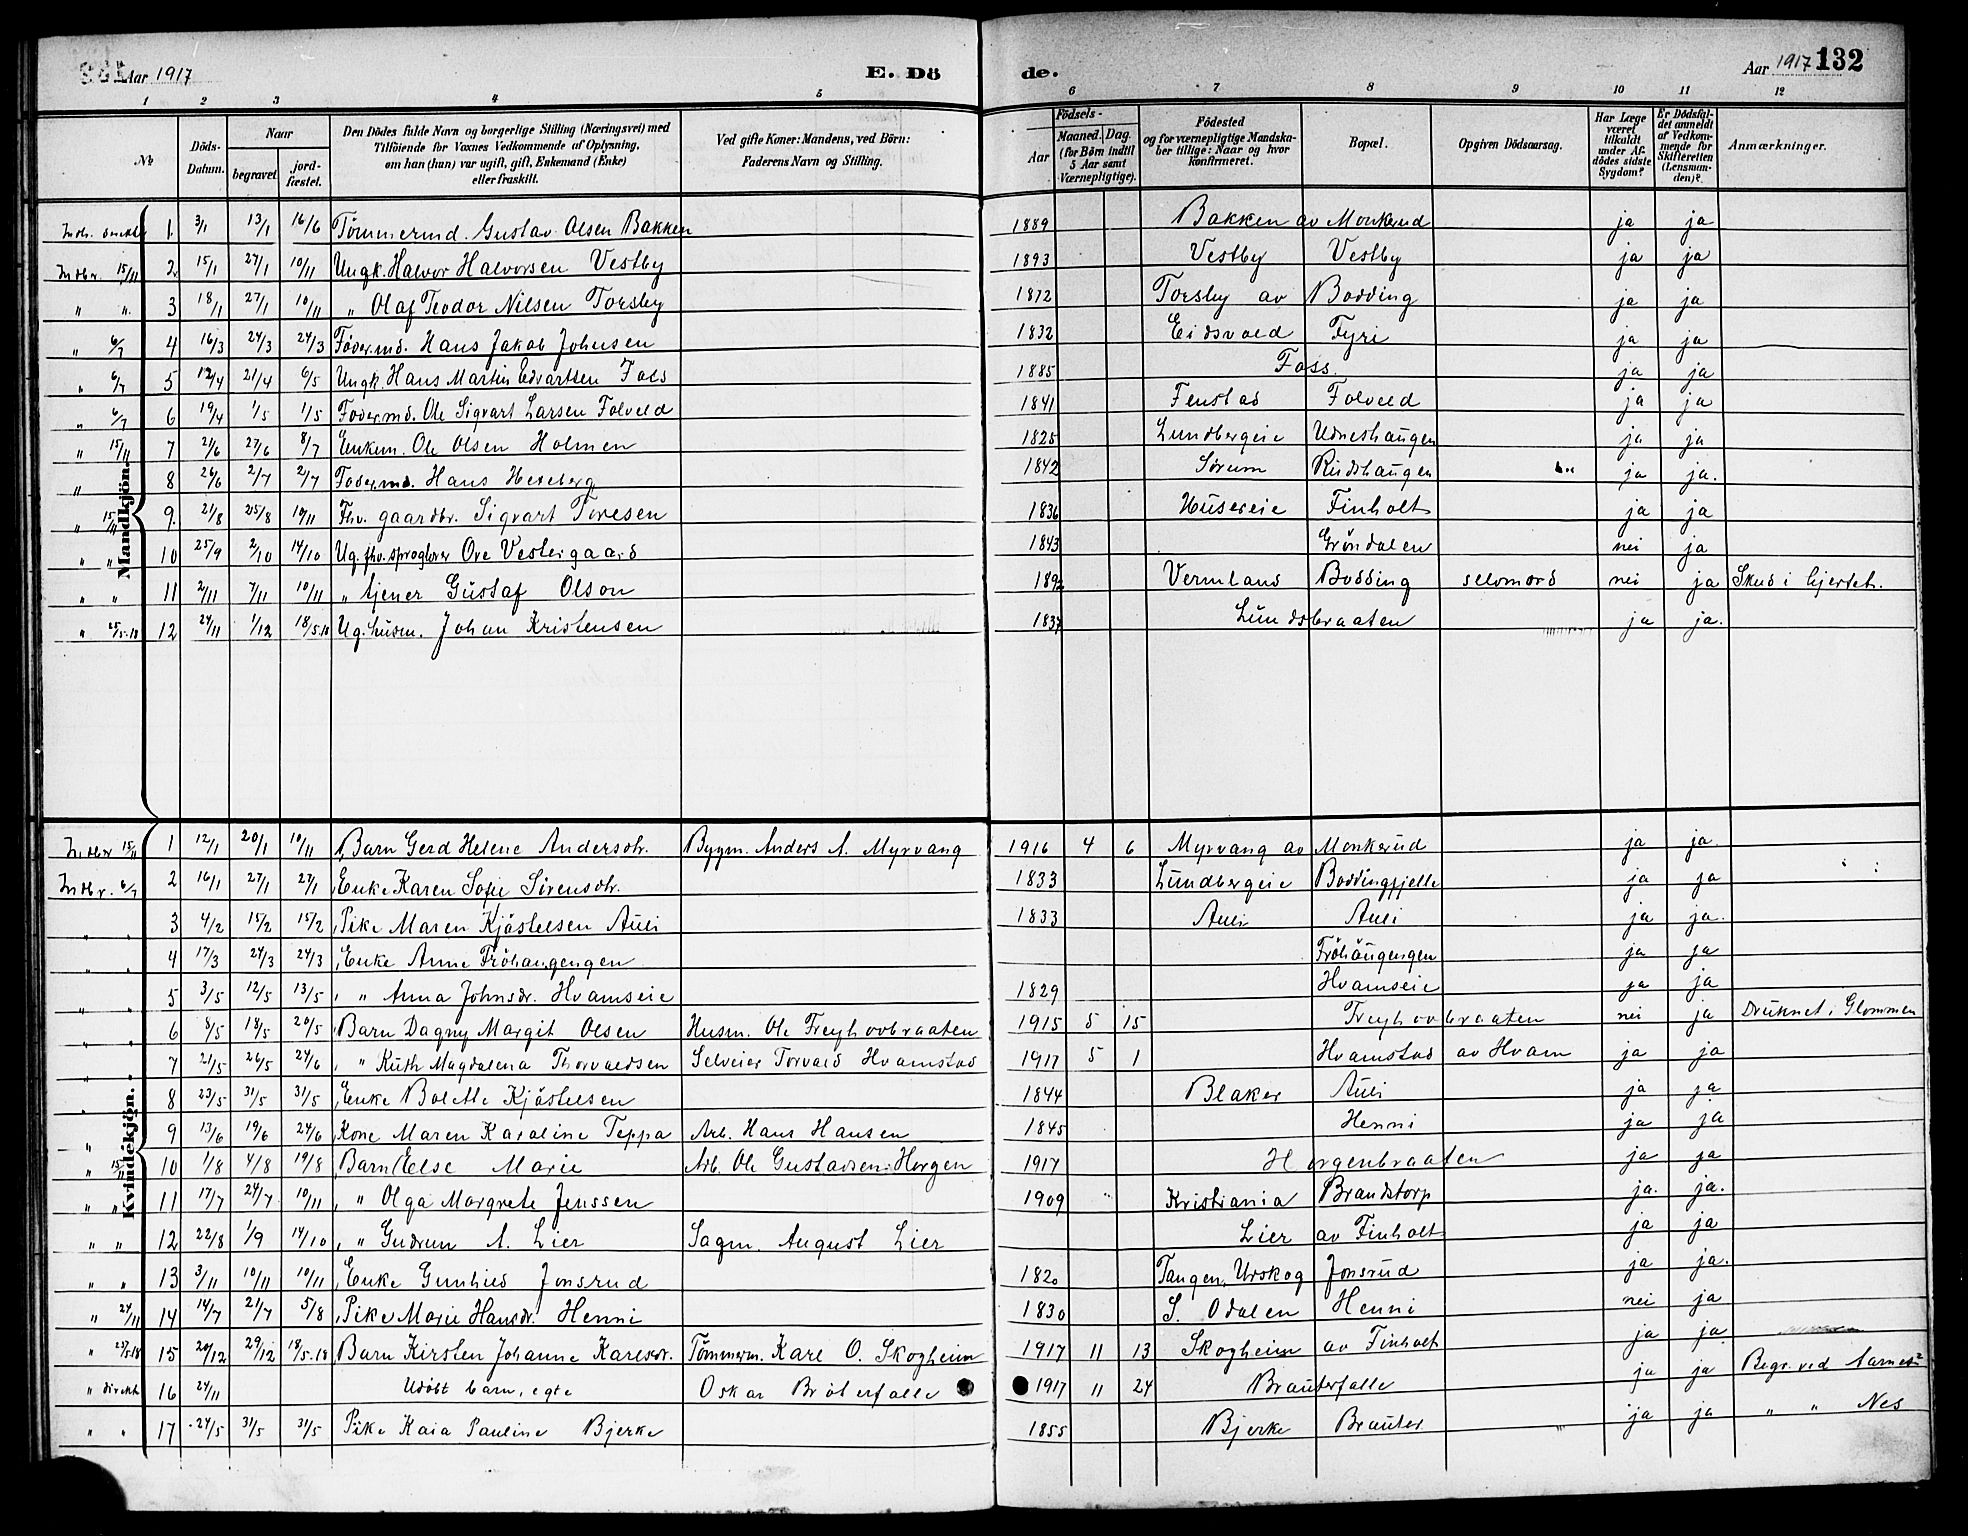 Aar 1917 E. Dö de. Aar 1917 132
1 2 3 4 5 6 7 8 9 10 11 12
No
Döds-Datum.
Naar
begravet
jord-fæstet.
Den Dödes fulde Navn og borgerlige Stilling (Næringsvei) med Tilföiende for Voxnes Vedkommende af Oplysning, om han (hun) var ugift, gift, Enkemand (Enke) eller fraskilt.
Ved gifte Koner: Mandens, ved Börn: Faderens Navn og Stilling.
Födsels-
Aar
Maaned. Dag.
(for Børn indtil 5 Aar samt Værnepligtige).
Födested og for værnepligtige Mandskaber tillige: Naar og hvor konfirmeret.
Bopæl.
Opgiven Dödsaarsag.
Har Læge været tilkaldt under Afdödes sidste Sygdom?
Er Dödsfaldet anmeldt af Vedkommende for Skifteretten (Lensmanden)?
Anmærkninger.
Mandkjön.
1. 3/1 13/1 16/6 Tömmermd. Gustav Olsen Bakken 1889 Bakken av Monkerud ja ja
Indbr. 15/11 2. 15/1 27/1 10/11 Ungk. Halvor Halvorsen Vestby 1893 Vestby Vestby ja ja
" " 3 18/1 27/1 10/11 " Olaf Teodor Nilsen Torsby 1872 Torsby av Bodding ja ja
" 6/7 4 16/3 24/3 24/3 Födermd. Hans Jakob Johnsen 1832 Eidsvold Fyri ja ja
" 6/7 5 12/4 21/4 6/5 Ungk. Hans Martin Edvartsen Foss 1885 Foss. ja ja
" 6/7 6 19/4 1/5 1/5 Fodermd. Ole Sigvart Larsen Folveld 1841 Fenstad Folveld ja ja
" 15/11 7 2/6 27/6 8/7 Enkem. Ole Olsen Holmen 1825 Lundbergeie Udneshaugen ja ja
" 8 26/6 2/7 2/7 Fodermd. Hans Hexeberg 1842 Sörum Rudshaugen ja ja.
" 15/11 9. 21/8 25/8 10/11 Fhv. gaardbr. Sigvart Toresen 1836 Husereie Finholt ja ja
" " 10 25/9 2/10 14/10 Ug. fhv. Ove Vestergaard 1843 Gröndalen nei ja
" " 11 2/11 7/11 10/11 " tjener Gustaf Olson 1892 Vermland Bodding selvmord nei ja Skud i hjertet.
" 25/5-18 12 24/11 1/12 18/5.18 Ug. husm. Johan Kristensen 1837 Lundsbraaten ja ja.
Kvindekjön.
Indbr 15/11 1 12/1 20/1 10/11 Barn Gerd Helene Andersdtr. Bygm. Anders A. Myrvang 1916 4 6 Myrvang av Monkerud ja ja.
Indbr. 6/7 2 16/1 27/1 27/1 Enke Karen Sofie Sörensdtr. 1833 Lundbergeie Boddingfjelle ja ja
" " 3 4/2 15/2 15/2 Pike Maren Kjöstelsen Auli 1833 Auli Auli ja ja.
" " 4 17/3 24/3 24/3 Enke Anne Fröhaugengen 1829 Fröhaugengen ja ja
" " 5 3/5 12/5 13/5 " Anna Johnsdr. Hvamseie Hvamseie ja ja
" " 6 8/5 18/5 20/5 Barn Dagny Margit Olsen Husm. Ole Freyhovbraaten 1915 5 15 Freyhovbraaten nei ja Druknet i Glommen
" " 7 21/5 26/5 24/6 " Ruth Magdalena Thorvaldsen Selveier Torvald Hvamstad 1917 5 1 Hvamstad av Hvam ja ja
" 8 23/5 31/5 31/5 Enke Bolette Kjöstelsen 1844 Blaker Auli ja ja
" 9 13/6 19/6 24/6 Kone Maren Karoline Teppa Arb. Hans Hansen 1845 Henni ja ja
" 15/11 10 1/8 4/8 19/8 Barn Else Marie Arb. Ole Gustavsen Horgen 1917 Horgenbraaten ja ja
" " 11 17/7 24/7 10/11 " Olga Margrete Jenssen 1909 Kristiania Brandstorp ja. ja.
" " 12 22/8 1/9 14/10 " Gudrun A. Lier Sagm. August Lier Lier av Finholt ja ja
" " 13 3/11 10/11 10/11 Enke Gunhild Jonsrud 1820 Tangen, Urskog Jonsrud ja ja.
" 24/11 14 14/7 21/7 5/8 Pike Marie Hansdr. Henni 1830 S. Odalen Henni nei ja
" 25/5-18 15 20/12 29/12 18/5.18 Barn Kirsten Johanne Karlsdr. Tömmerm. Karl O. Skogheim 1917 11 13 Skogheim av Finholt ja ja
" direkte 16 24/11 Udöbt barn, egte Oskar Bröterfalle 1917 11 24 Brauterfalle ja ja Begr. ved Aarnes
" " 17 24/5 31/5 31/5 Pike Kaia Pauline Bjerke 1855 Bjerke Brauter ja ja " " Nes